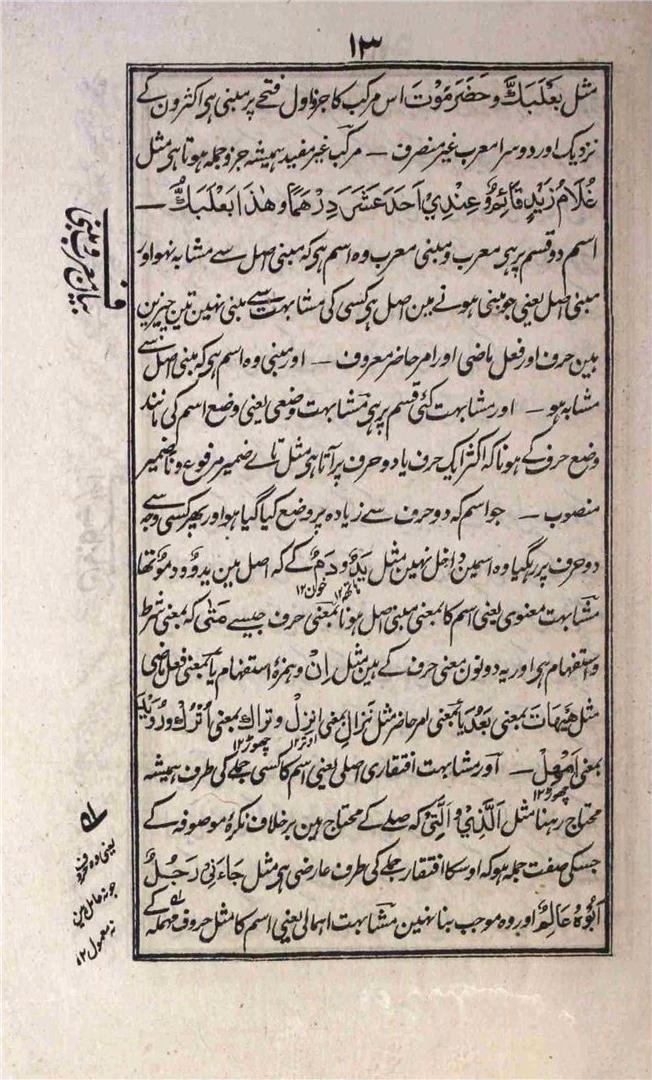 ۱۳
مثل بَعْلَبَكَّ وحَضَرَمَوْتَ اس مرکب کا جزو اول فتحے پر مبنی ہی اکثرون کے
نزدیک اور دوسرا معرب غیر منصرف — مرکب غیر مفید ہمیشہ جزو جملہ ہوتا ہی مثل
غُلَامُ زَيْدٍ قَائِمٌ وعِنْدِيْ اَحَدَ عَشَرَ دِرْهَمًا وهٰذَا بَعْلَبَكُّ —
فصل بیان معرب و مبنی
اسم دو قسم پر ہی معرب و مبنی معرب وہ اسم ہی کہ مبنی اصل سے مشابہ نہو اور
مبنی اصل یعنی جو مبنی ہونے مین اصل ہی کسی کی مشابہت سے مبنی نہین تین چیزین
ہین حرف اور فعل ماضی اور امر حاضر معروف — اور مبنی وہ اسم ہی کہ مبنی اصل سے
مشابہ ہو — اور مشابہت کئی قسم پر ہی مشابہت وضعی یعنی وضع اسم کی مانند
وضع حرف کے ہونا کہ اکثر ایک حرف یا دو حرف پر آتا ہی مثل تاے ضمیر مرفوع و نا ضمیر
منصوب — جو اسم کہ دو حرف سے زیادہ پر وضع کیا گیا ہو اور پھر کسی وجہ سے
دو حرف پر رہگیا وہ اسمین داخل نہین مثل يَدٌ و دَمٌ کے کہ اصل مین یدوٌ و دموٌ تھا
ہاتھ ۱۲ خون ۱۲
مشابہت معنوی یعنی اسم کا بمعنی مبنی اصل ہونا بمعنی حرف جیسے مَتٰی کہ بمعنی شرط
و استفہام ہی اور یہ دونون معنی حرف کے ہین مثل اِنْ و ہمزۂ استفہام یا بمعنی فعل ماضی
مثل هَيْهَاتَ بمعنی بَعُدَ یا بمعنی امر حاضر مثل نَزَالِ بمعنی اِنْزِلْ و تَرَاكِ بمعنی اُتْرُكْ و رُوَيْدَ
اوتر ۱۲ چھوڑ ۱۲
بمعنی اَمْهِلْ — اور مشابہت افتقاری اصلی یعنی اسم کا کسی جملے کی طرف ہمیشہ
چھوڑ ۱۲
محتاج رہنا مثل اَلَّذِيْ و اَلَّتِيْ کہ صلے کے محتاج ہین برخلاف نکرۂ موصوفہ کے
جسکی صفت جملہ ہو کہ اوسکا افتقار جملے کی طرف عارضی ہی مثل جَاءَنِيْ رَجُلٌ
اَبُوْهُ عَالِمٌ اور وہ موجب بنا نہین مشابہت اہمالی یعنی اسم کا مثل حروف مہملہ کے
یعنی وہ حروف
جو نہ عامل ہین
نہ معمول ۱۲